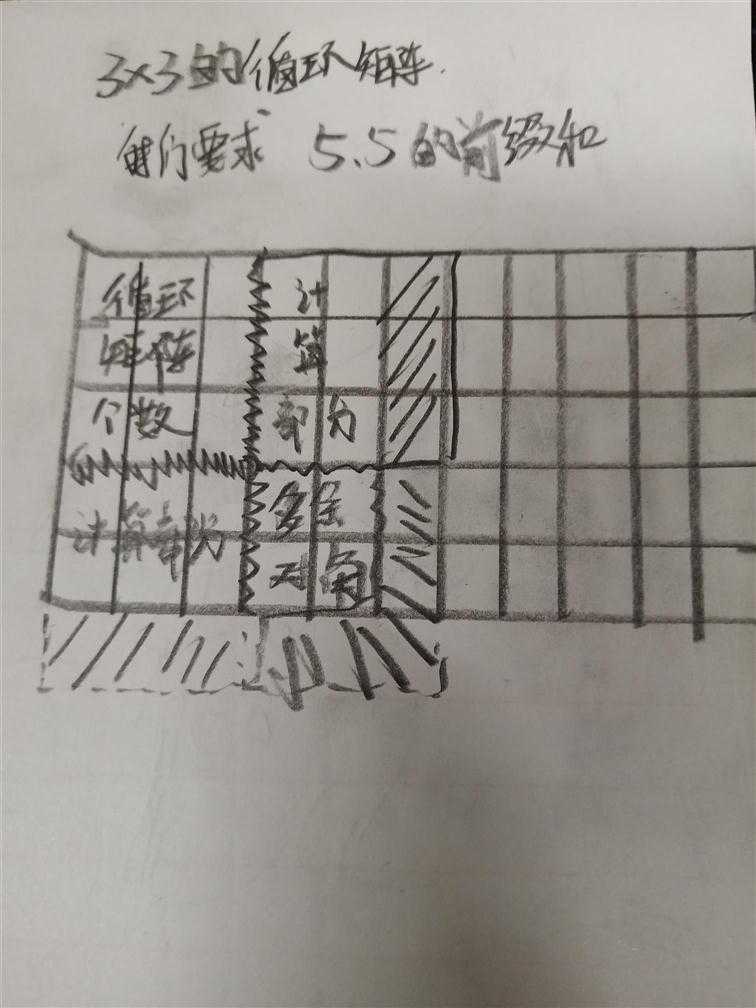 3×3的循环矩阵.
我们要求 5.5的前缀和
循环 计
矩阵 算
个数 部分
计算部分 多余
对角